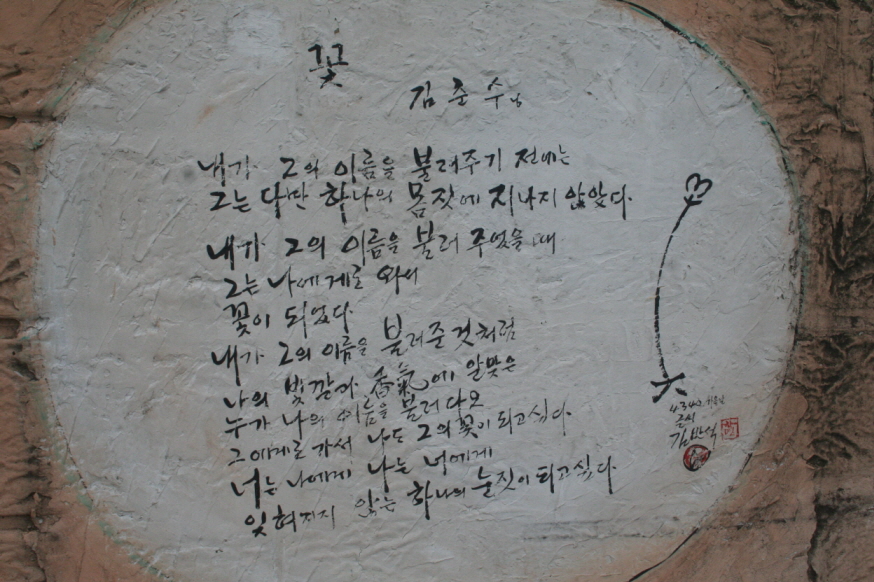 꽃
김춘수님
내가 그의 이름을 불러주기 전에는
그는 다만 하나의 몸짓에 지나지 않았다.
내가 그의 이름을 불러 주었을 때
그는 나에게로 와서
꽃이 되었다.
내가 그의 이름을 불러준 것처럼
나의 빛깔과 香氣에 알맞은
누가 나의 이름을 불러다오
그에게로 가서 나도 그의 꽃이 되고싶다.
너는 나에게 나는 너에게
잊혀지지 않는 하나의 눈짓이 되고싶다.
김반석